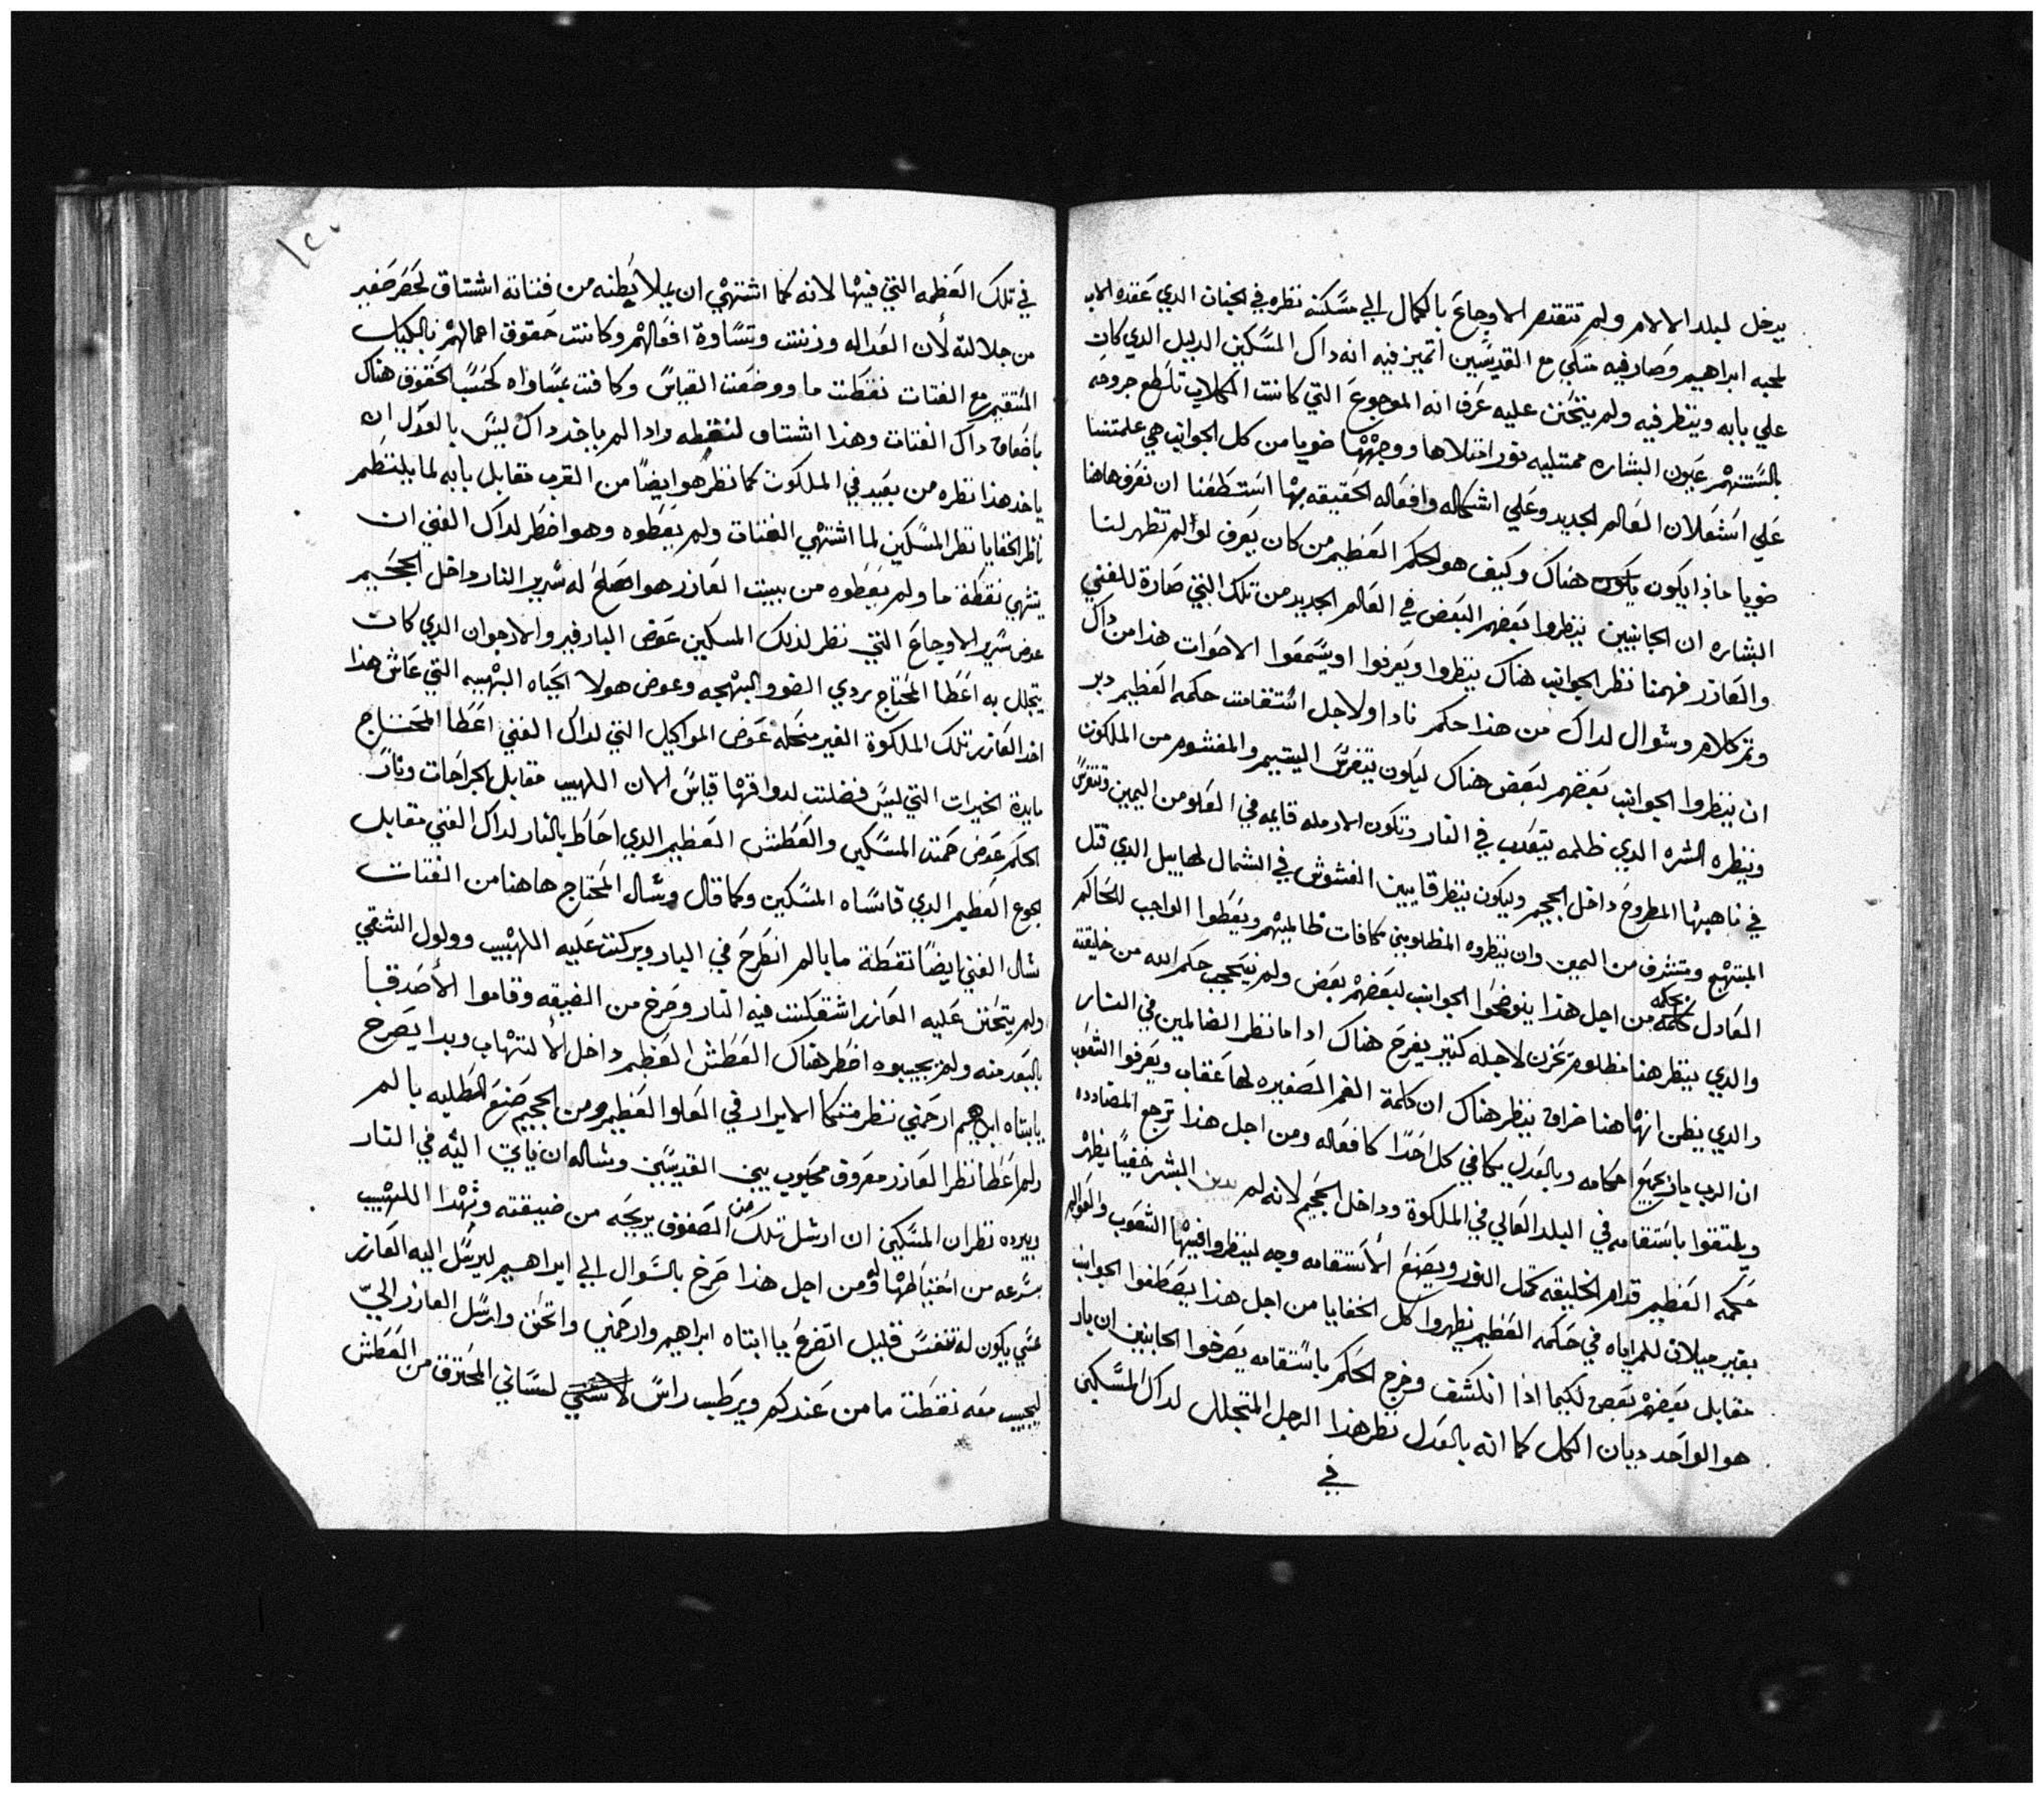 يدخل لبلد الالام ولم تتقدم الاوجاع بالكمال الي مسكنه نظره في الجنان الدي عقده الاب
لمحبه ابراهيم وصار فيه متكي مع القديسين اتميز فيه انه داك المسكين الدليل الدي كان
علي بابه وينظر فيه ولم يتحنن عليه عرف انه الموجوع التي كانت الكلاب تلطع جروحه
بالسنتهم عيون البشاره ممتليه نور امتلاها ووجهها ضويا من كل الجوانب هي علمتنا
علي اشتعلان العالم الجديد وعلي اشكاله وافعاله الحقيقه بها استطعنا ان نعرف هاهنا
ضويا ماذا يكون يكون هناك وكيف هو الحكم العظيم من كان يعرف لو لم تظهر لنا
البشاره ان الجانبين ينظروا بعضهم البعض في العالم الجديد من تلك التي صارة للغني
والعازر فهمنا نظر الجوانب هناك ينظروا ويعرفوا او يسمعوا الاصوات هذا من داك
وتم كلام وسوال لداك من هذا حكم نادا ولاجل استقامت حكمه العظيم دبر
ان ينظروا الجوانب بعضهم لبعض هناك ليكون يتفرس اليتيم والمغشوم من الملكوت
وينظره الشره الدي ظلمه يتعدب في النار وتكون الارمله قايمه في العلو من اليمين وتتفرس
في ناهبها المطروح داخل الجحيم وليكون ينظر قايين الغشوش في الشمال لهابيل الدي قتل
المبتهج ومتشرف من اليمين وان ينظروه المظلومين مكافات ظالمينهم ويعطوا الواجب للحاكم
العادل بحكمه من اجل هذا ينوضحوا الجوانب لبعضهم بعض ولم ينحجب حكم الله من خليقته
والدي ينظر هنا مظلوم تحزن لاجله كتير يفرح هناك ادا ما نظر الضالمين في النار
والدي يظن انها هنا خرافه ينظر هناك ان كلمة الفم الصغيره لها عقاب ويعرفوا الشعوب
ان الرب باين بجميع احكامه وبالعدل يكافي كل احدا كافعاله ومن اجل هذا ترجع المضادده
ويلتقوا باستقامه في البلد العالي في الملكوة وداخل الجحيم لانه لم البشر خفيا يظهر
حكمه العظيم قدام الخليقه كمتل النور ويصنع الاستقامه وجه لينظروا فيها الشعوب والعوالم
بغير ميلان للمراياه في حكمه العظيم يظهروا كل الخفايا من اجل هذا يصطفوا الجوانب
مقابل بعضهم بعض لكيما اذا انكشف وخرج الحكم باستقامه يصرخوا الجانبين ان بار
هو الواحد ديان الكل كما انه بالعدل نظر هذا الرجل المتجلل لداك المسكين
في
في تلك العظمه التي فيها لانه كما اشتهي ان يملا بطنه من فتاته اشتاق لحصر صغير
من جلالته لان العداله وزنت وتساوة افعالهم وكانت حقوق اعمالهم بالكيال
المستقيم مع الفتات نقطت ما ووضعت القياس وكانت عساواه كحسب الحقوق هناك
باضعاف داك الفتات وهذا اشتاق لنقطه وادا لم ياخد داك ليس بالعدل ان
ياخد هذا نظره من بعيد في الملكوت كما نظر هو ايضا من القرب مقابل بابه لما ينتظم
ناظر الخفايا نظر المسكين لما اشتهي الفتات ولم يعطوه وهو اضطر لداك الغني ان
يشتهي نقطة ما ولم يعطوه من بيت العازر هو اصلح له سرير النار داخل الجحيم
عوض سرير الاوجاع التي نظر لذلك المسكين عوض البارفير والارجوان الدي كان
يتجلل به اعطا المحتاج بردي الضو والبهجه وعوض هولا الحياه البهيه التي عاش هذا
اخد العازر تلك الملكوة الغير منحله عوض المواكيل التي لداك الغني اعطا المحتاج
مايدة الخيرات التي ليس فضلت لدواقها قياس الان اللهيب مقابل الجراحات ونار
الحكم عوض حمت المسكين والعطش العظيم الدي احاط بالنار لداك الغني مقابل
الجوع العظيم الدي قاساه المسكين وكما قال وسال المحتاج هاهنا من الفتات
سال الغني ايضا نقطة ما بالم انطرح في النار وبركت عليه اللهيب وولول الشقي
ولم يتحنن عليه العازر اشتعلت فيه النار وصرخ من الضيقه وقاموا الاصدقا
بالبعد منه ولم يجيبوه اضطر هناك العطش العظيم داخل الالتهاب وبدا يصرخ
يابتاه ابراهيم ارحمني نظر متكا الابرار في العلو العظيم ومن الجحيم صنع الطلبه بالم
ولم اعطا نظر العازر معروف محبوب بين القديسين وساله ان ياتي اليه في النار
ويبرده نظر ان المسكين ان ارسل تلك من الصفوف يريحه من ضيقته وتهدا اللهيب
بسرعه من اغتباطها له ومن اجل هذا صرخ بالسوال الي ابراهيم ليرسل اليه العازر
عسي يكون له تنفس قليل اتضرع يا ابتاه ابراهيم وارحمني واتحنن وارسل العازر اليّ
ليجيب معه نقطت ما من عندكم ويرطب راس لساني المحترق من العطش